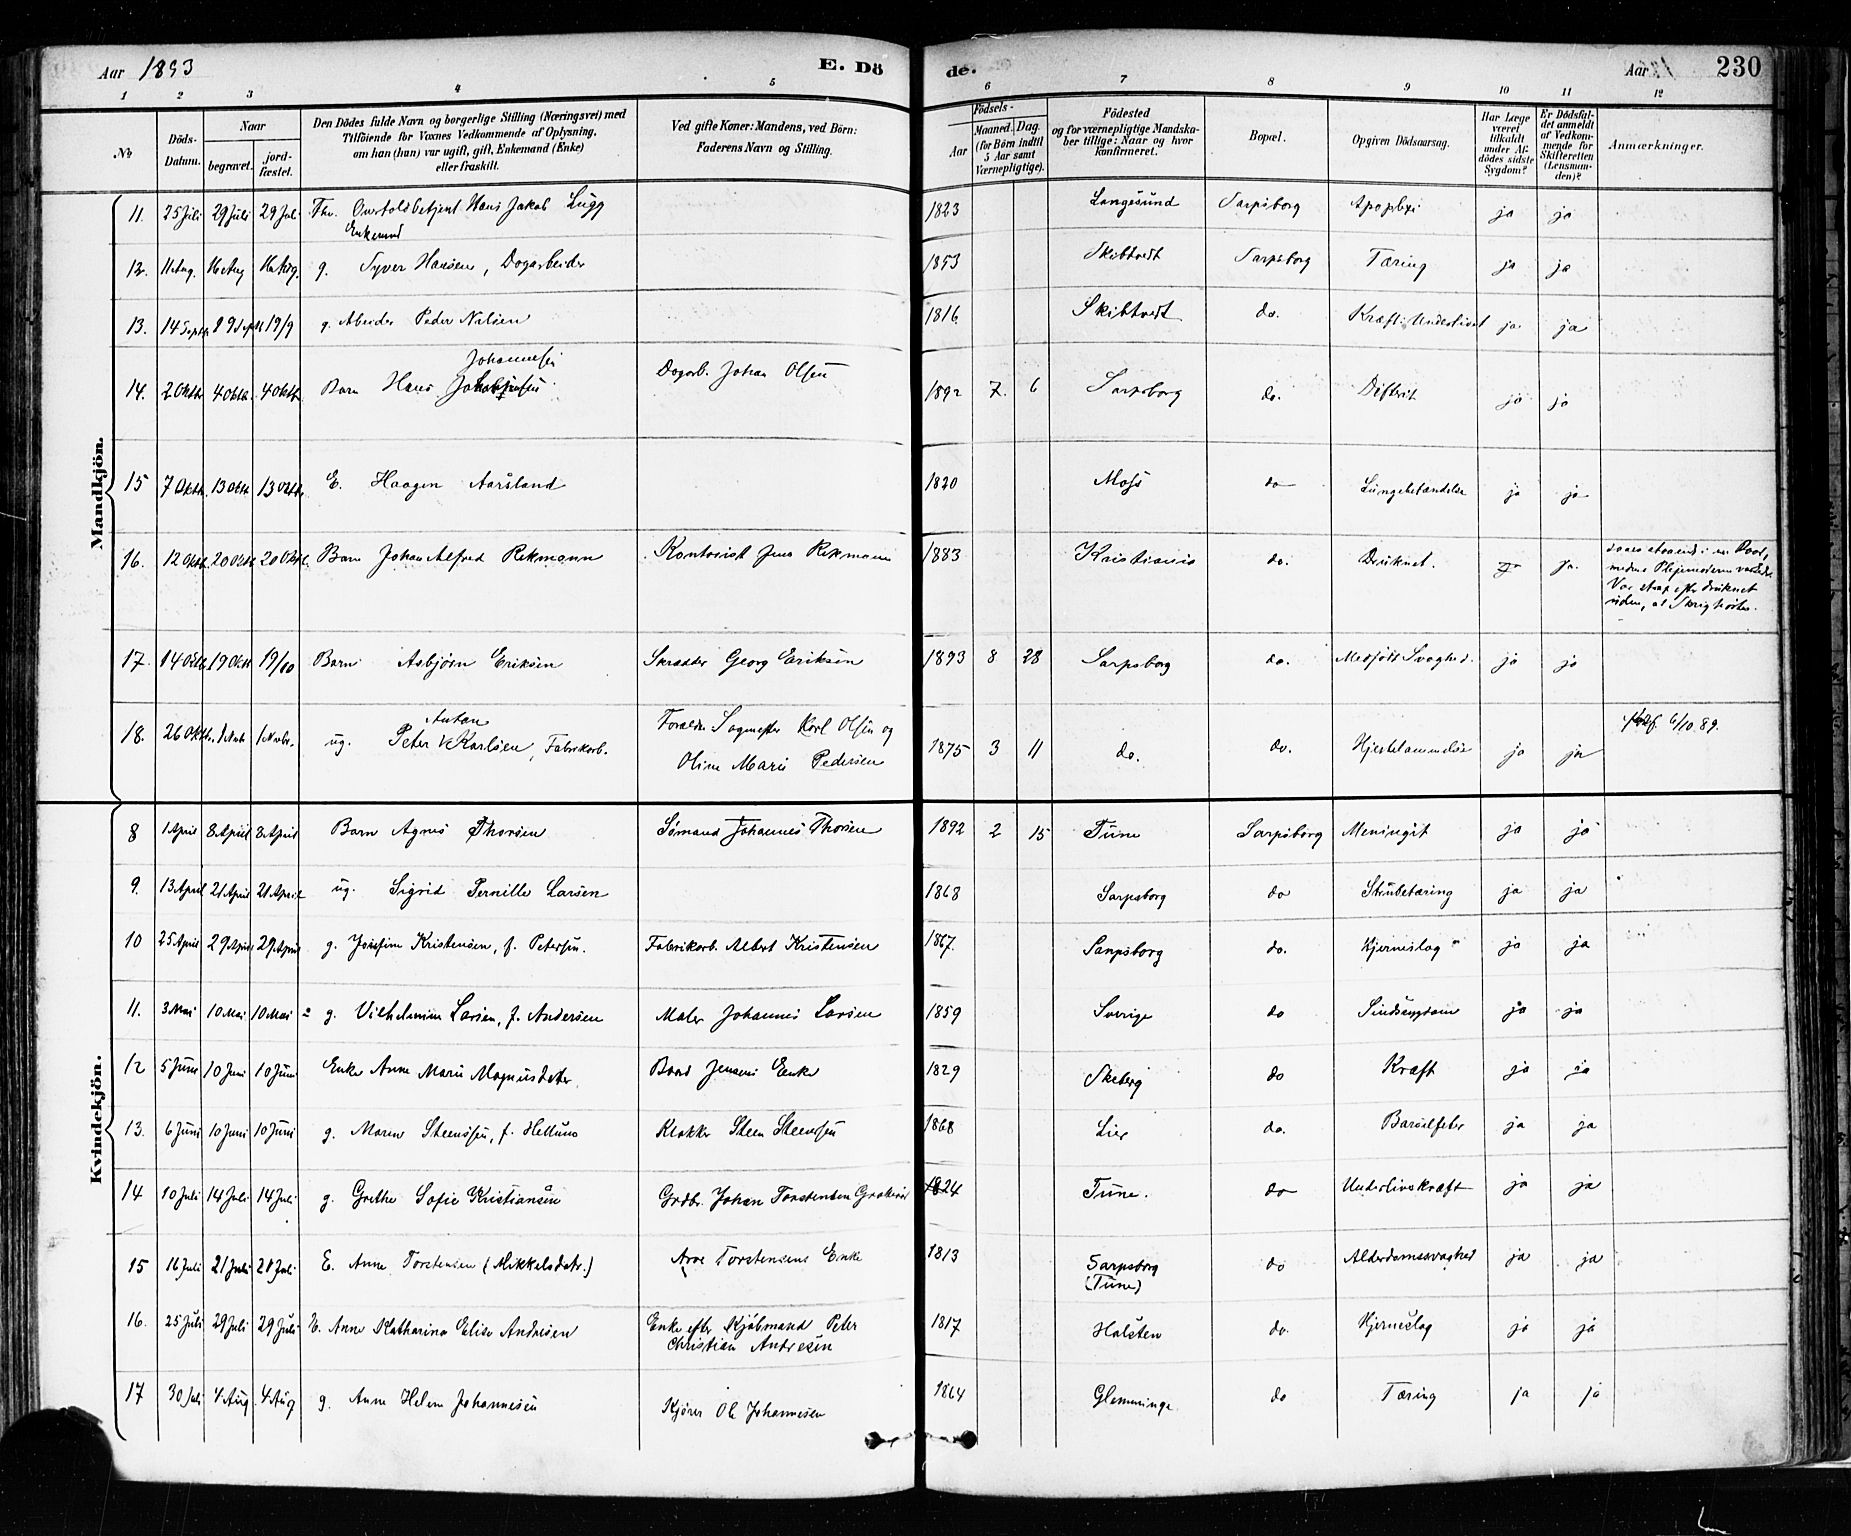 Aar 1893 E. Dö de. Aar 230
1 2 3 4 5 6 7 8 9 10 11 12
№ Döds-Datum. Naar begravet. jord-fæstet. Den Dödes fulde Navn og borgerlige Stilling (Næringsvei) med Tilföiende for Voxnes Vedkommende af Oplysning, om han (hun) var ugift, gift, Enkemand (Enke) eller fraskilt. Ved gifte Koner: Mandens, ved Börn: Faderens Navn og Stilling. Födsels- Aar Maaned. Dag. (for Börn indtil 5 Aar samt Værnepligtige). Födested og for værnepligtige Mandskaber tillige: Naar og hvor konfirmeret. Bopæl. Opgiven Dödsaarsag. Har Læge været tilkaldt under Afdödes sidste Sygdom? Er Dödsfaldet anmeldt af Vedkommende for Skifteretten (Lensmanden)? Anmærkninger.
Mandkjön.
11. 25 Juli 29 Juli 29 Juli Fhv. Overtoldbetjent Hans Jakob Lugg Enkemand 1823 Langesund Sarpsborg Apoplexi ja ja
12. 11 Aug. 16 Aug 16 Aug. g. Syver Hansen, Dagarbeider 1853 Skibtvedt Sarpsborg Tæring ja ja
13. 14 Septbr 19 Septbr 19/9 g. Arbeider Peder Nilsen 1816 Skibtvedt do. Kræft i Underlivet ja ja
14. 2 Oktbr 4 Oktb. 4 Oktbr. Barn Hans Johannesen Dagarb. Johan Olsen 1892 7. 6 Sarpsborg do. Difterit ja ja
15 7 Oktbr. 13 Oktbr 13 Oktbr. E. Haagen Aarsland 1820 Moss do Lungebetændelse ja ja
16. 12 Oktbr. 20 Oktbr 20 Oktbr. Barn Johan Alfred Rekmann Kontorist Jens Rekmann 1883 Kristiania do. Druknet. ja.
17. 14 Oktbr. 19 Oktbr 19/10 Barn Asbjörn Eriksen Skrædder Georg Eriksen 1893 8 28 Sarpsborg do. Medfödt Svaghed. ja ja
18. 26 Oktbr. 1 Novbr 1 Novbr. ug. Peter Anton Karlsen, Fabrikarb. Forældre Sagmester Karl Olsen og Oline Marie Pedersen 1875 3 11 do. do. Hjertelammelse ja ja 6/10.89.
Kvindekjön.
8 1 April 8 April 8 April Barn Agnes Thorsen Sömand Johannes Thorsen 1892 2 15 Tune Sarpsborg Meningit ja ja
9. 13 April 21 April 21 April ug. Sigrid Pernille Larsen 1868 Sarpsborg do Strubetæring ja ja
10 25 April 29 April 29 April g. Josefine Kristensen, f. Petersen. Fabrikarb. Albert Kristensen 1867. Sarpsborg do. Hjerneslag ja ja
11. 3 Mai 10 Mai 10 Mai g. Vilhelmine Larsen, f. Andersen Maler Johannes Larsen 1859 Sverige do Sindssygdom ja ja
12 5 Juni 10 Juni 10 Juni Enke Anne Marie Magnusdatter Baard Jensens Enke 1829 Skeberg do Kræft ja ja
13. 6 Juni 10 Juni 10 Juni g. Maren Steenssen, f. Hellum Klokker Steen Steenssen 1868 Lier do. Barselfeber ja ja
14 10 Juli 14 Juli 14 Juli g. Grethe Sofie Kristiansen Grdbr. Johan Torstensen 1824 Tune. do Underlivskræft ja ja
15 16 Juli 21 Juli 21 Juli E. Anne Torstensen (Mikkelsdatr.) Arve Torstensens Enke 1813 Sarpsborg (Tune) do Alderdomssvaghed ja ja
16. 25 Juli 29 Juli 29 Juli E. Anne Katharina Elise Andresen Enke efter Kjöbmand Peter Christian Andresen 1817 Holsten do. Hjerneslag ja ja
17 30 Juli 4 Aug 4 Aug g. Anne Helene Johannesen Kjörer Ole Johannesen 1864 Glemminge do Tæring ja ja